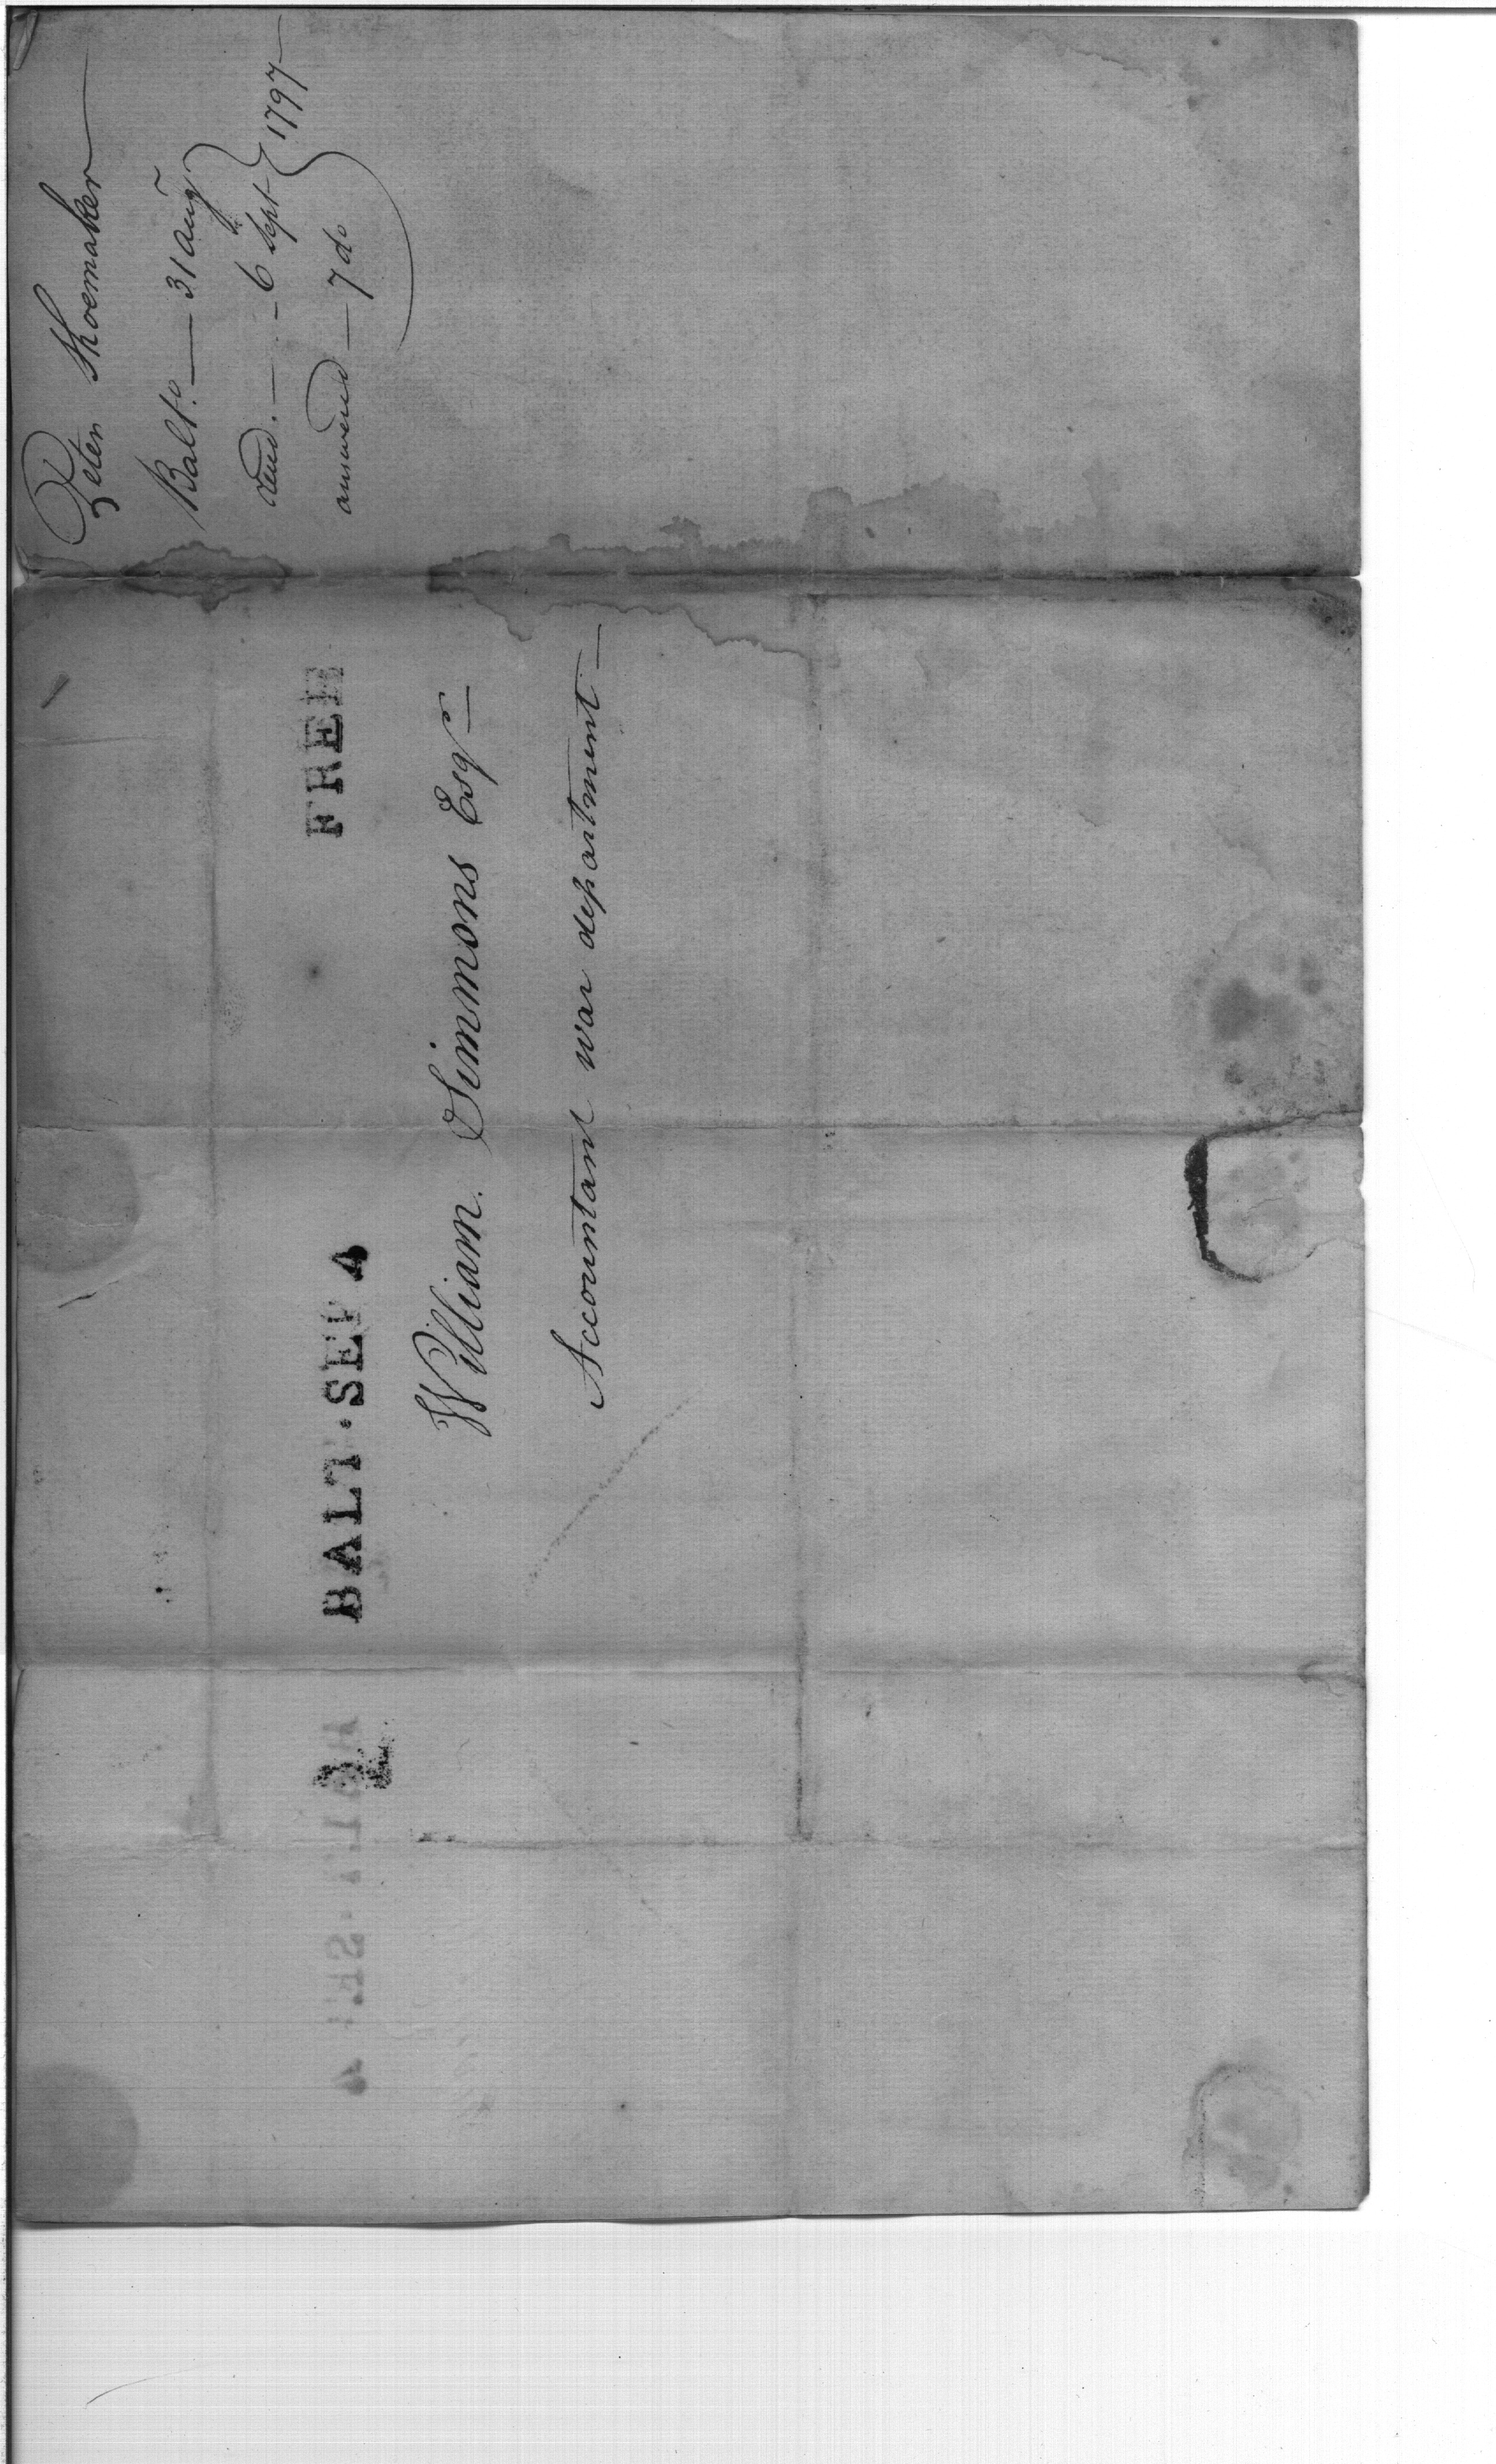 Peter Shoemaker
Balto. — 31 Aug
recd. — 6 Sept 1797
answered — 7 do
FREE
BALT·SEP 4
William Simmons Esqr
Accountant war department